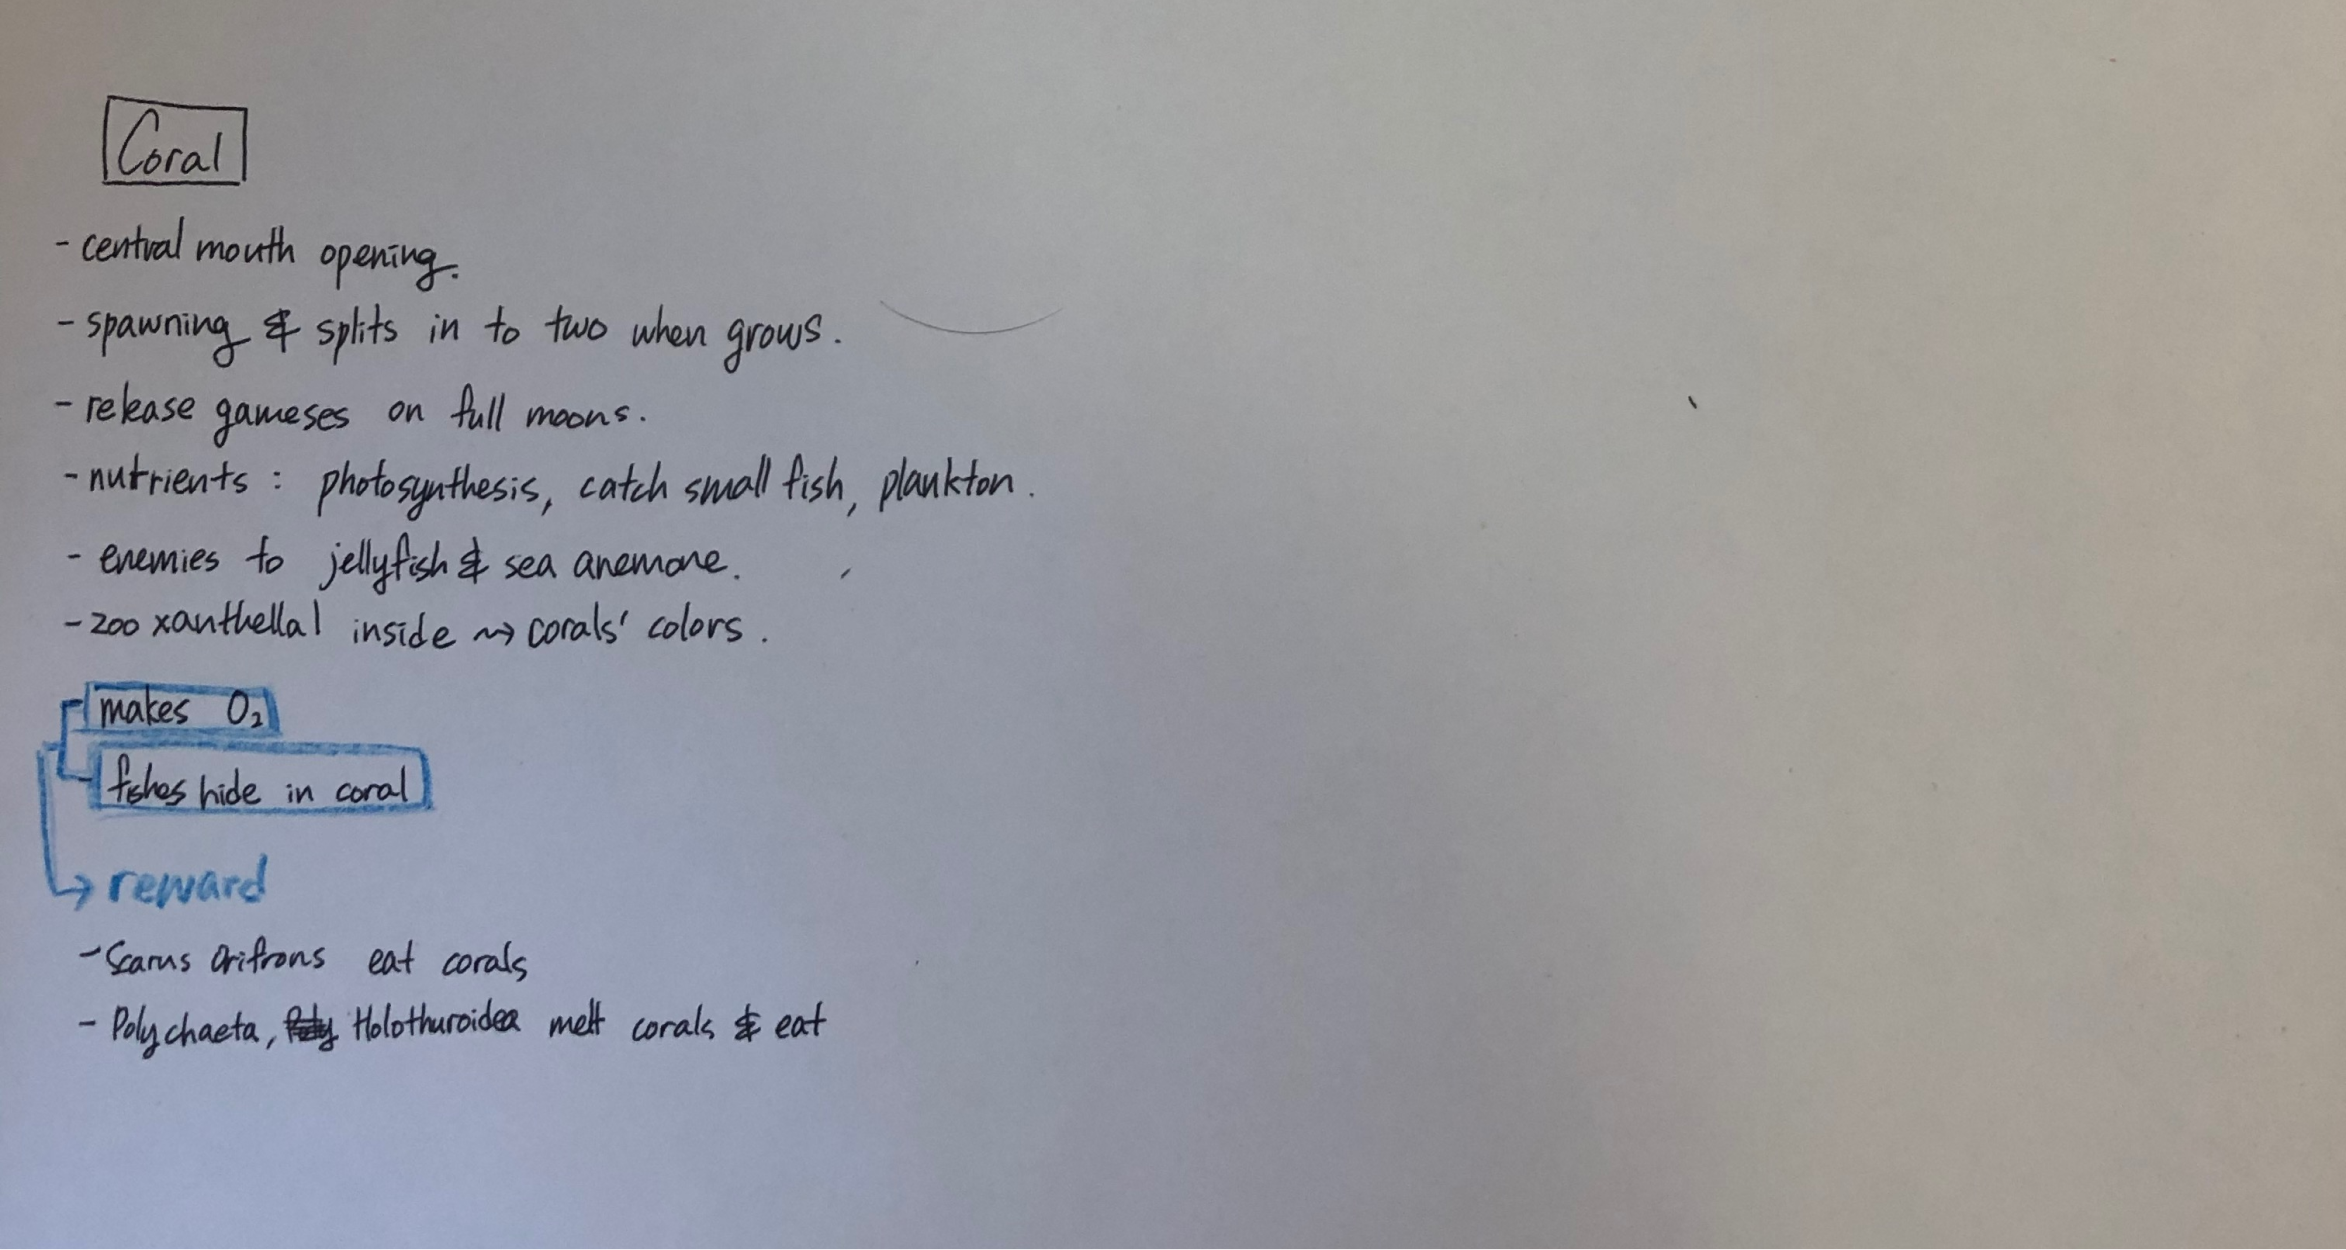 Coral
- central mouth opening.
- spawning & splits in to two when grows.
- release gameses on full moons.
- nutrients : photosynthesis, catch small fish, plankton.
- enemies to jellyfish & sea anemone.
- zoo xanthellal inside ⇝ corals' colors.
makes O₂
fishes hide in coral
→ reward
- Scarus Orifrons eat corals
- Polychaeta, Holothuroidea melt corals & eat